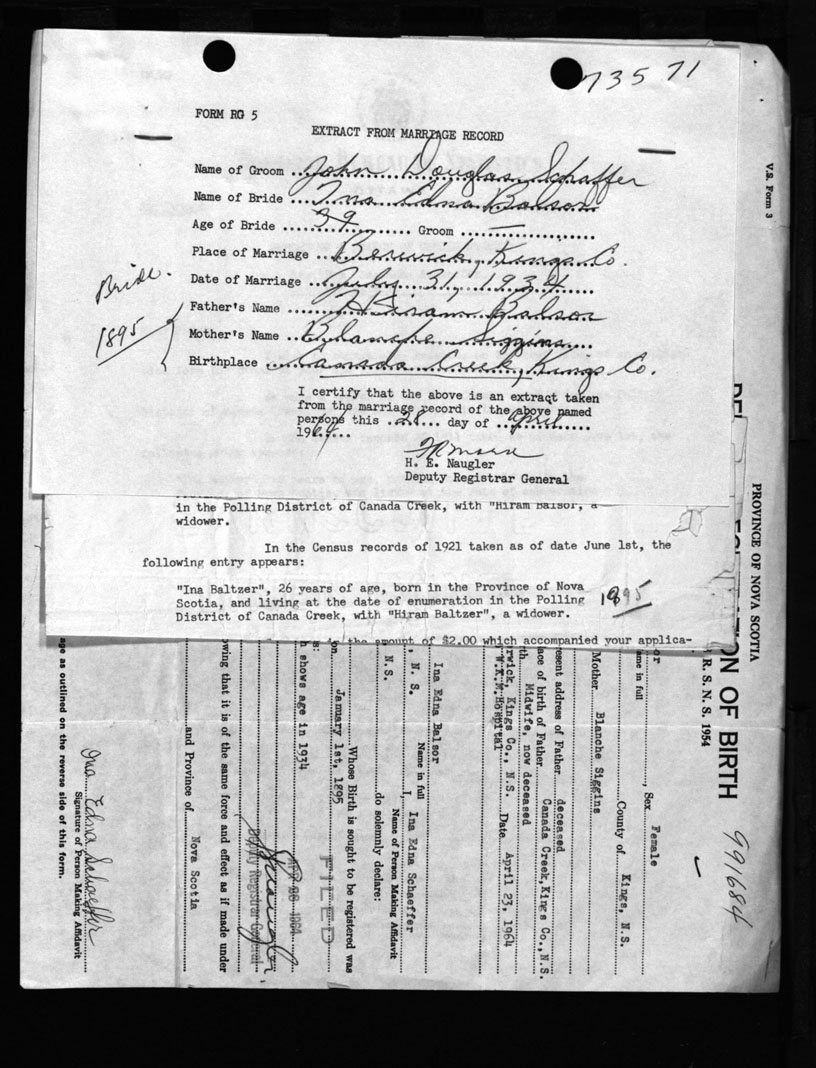 73571
FORM RG 5
EXTRACT FROM MARRIAGE RECORD
Name of Groom John Douglas Schaffer
Name of Bride Ina Edna Balsor
Age of Bride 39 Groom —
Place of Marriage Berwick, Kings Co.
Date of Marriage July 31, 1934
Father's Name Hiram Balsor
Mother's Name Blanche Siggins
Birthplace Canada Creek, Kings Co.
Bride.
1895
I certify that the above is an extract taken
from the marriage record of the above named
persons this 28 day of April
1964
H. E. Naugler
Deputy Registrar General
in the Polling District of Canada Creek, with "Hiram Balsor, a
widower.
In the Census records of 1921 taken as of date June 1st, the
following entry appears:
"Ina Baltzer", 26 years of age, born in the Province of Nova
Scotia, and living at the date of enumeration in the Polling
District of Canada Creek, with "Hiram Baltzer", a widower.
1895
the amount of $2.00 which accompanied your applica-
V.S. Form 3
PROVINCE OF NOVA SCOTIA
ON OF BIRTH
R. S. N. S. 1954
991684
ame in full
Sex Female
County of Kings, N.S.
Mother Blanche Siggins
esent address of Father deceased
ace of birth of Father Canada Creek, Kings Co., N.S.
th Midwife, now deceased
rwick, Kings Co., N.S. Date April 23, 1964
W.K.M.Hospital
Ina Edna Balsor
Name in full
, N. S. I, Ina Edna Schaeffer
Name of Person Making Affidavit
N.S. do solemnly declare:
Whose Birth is sought to be registered was
on January 1st, 1895
s:
h shows age in 1934
FILED
28 1964
Deputy Registrar General
owing that it is of the same force and effect as if made under
and Province of Nova Scotia
Ina Edna Schaeffer
Signature of Person Making Affidavit
age as outlined on the reverse side of this form.